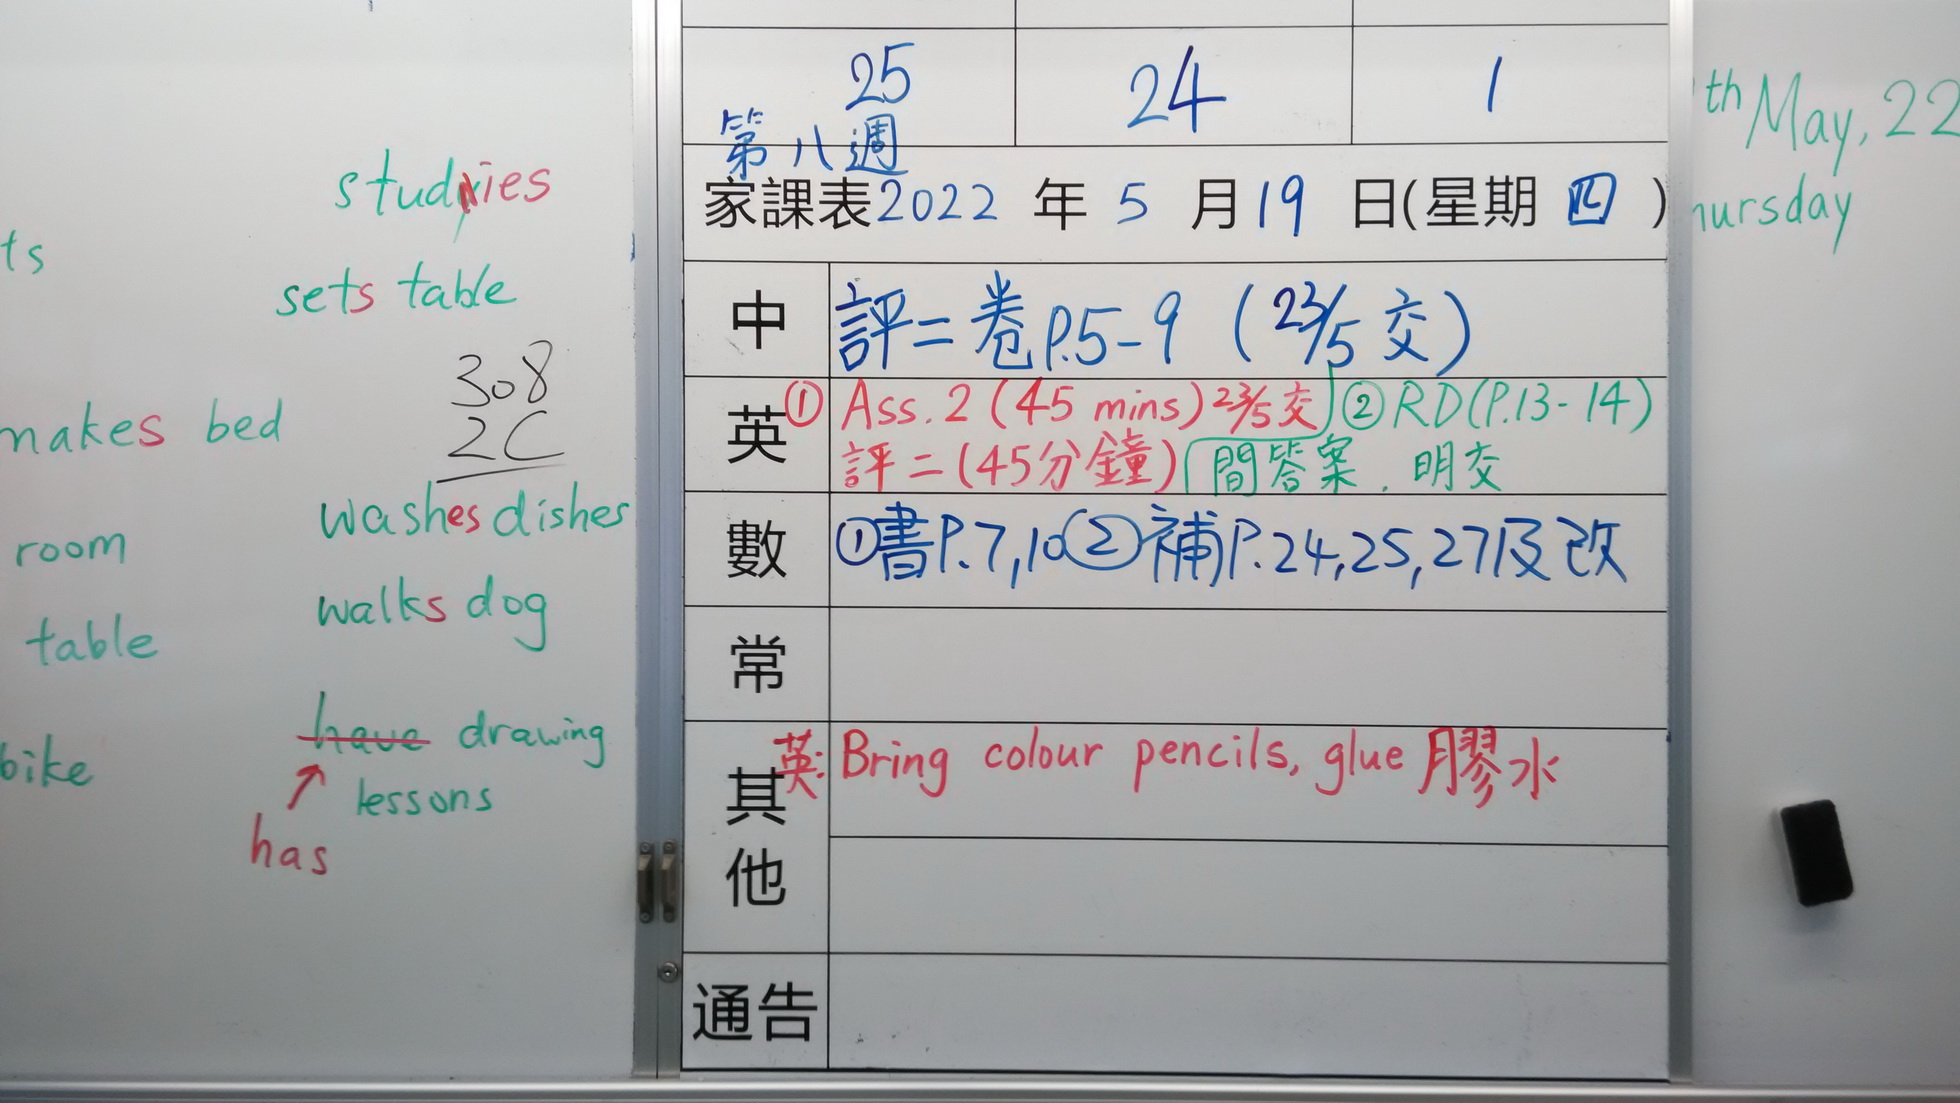 studies
ts
sets table
308
2C
makes bed
washes dishes
room
walks dog
table
have drawing
bike
lessons
has
25 24 1
第八週
家課表2022 年 5 月 19 日(星期 四 )
中 評二卷P.5-9 (23/5交)
英 ① Ass. 2 (45 mins) 23/5交 ② RD(P.13-14)
評二(45分鐘) 間答案. 明交
數 ①書P.7,10②補P.24,25,27及改
常
其他
英: Bring colour pencils, glue 膠水
通告
th May, 22
hursday